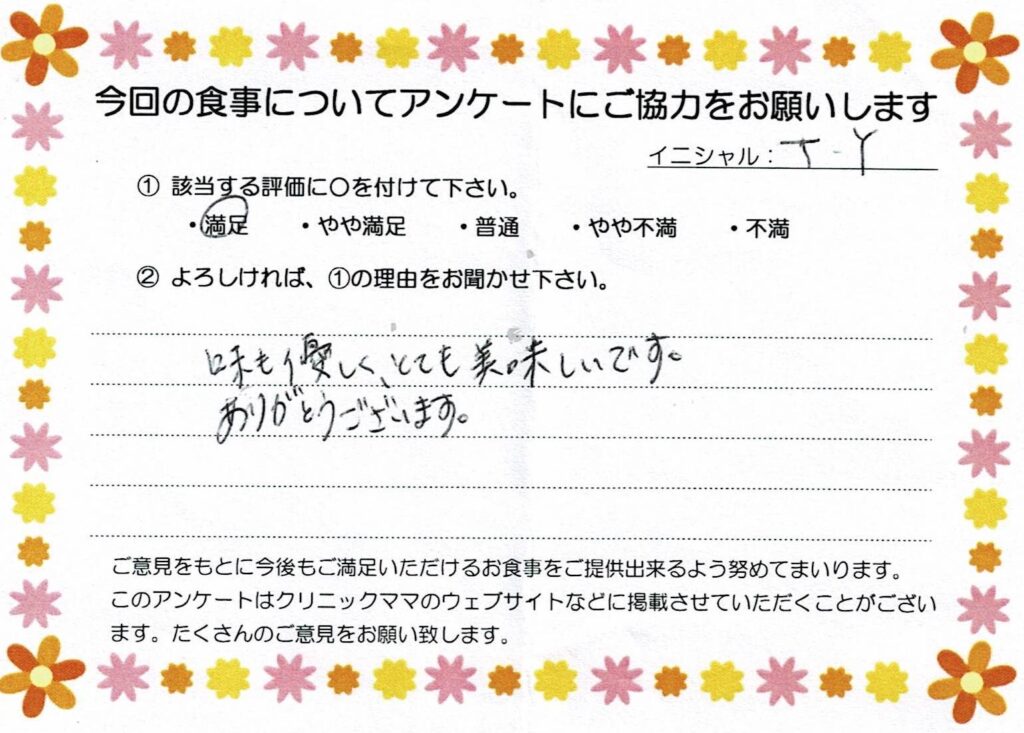 今回の食事についてアンケートにご協力をお願いします
イニシャル：T-Y
① 該当する評価に〇を付けて下さい。
・満足 ・やや満足 ・普通 ・やや不満 ・不満
② よろしければ、①の理由をお聞かせ下さい。
味も優しく、とても美味しいです。
ありがとうございます。
ご意見をもとに今後もご満足いただけるお食事をご提供出来るよう努めてまいります。
このアンケートはクリニックママのウェブサイトなどに掲載させていただくことがござい
ます。たくさんのご意見をお願い致します。